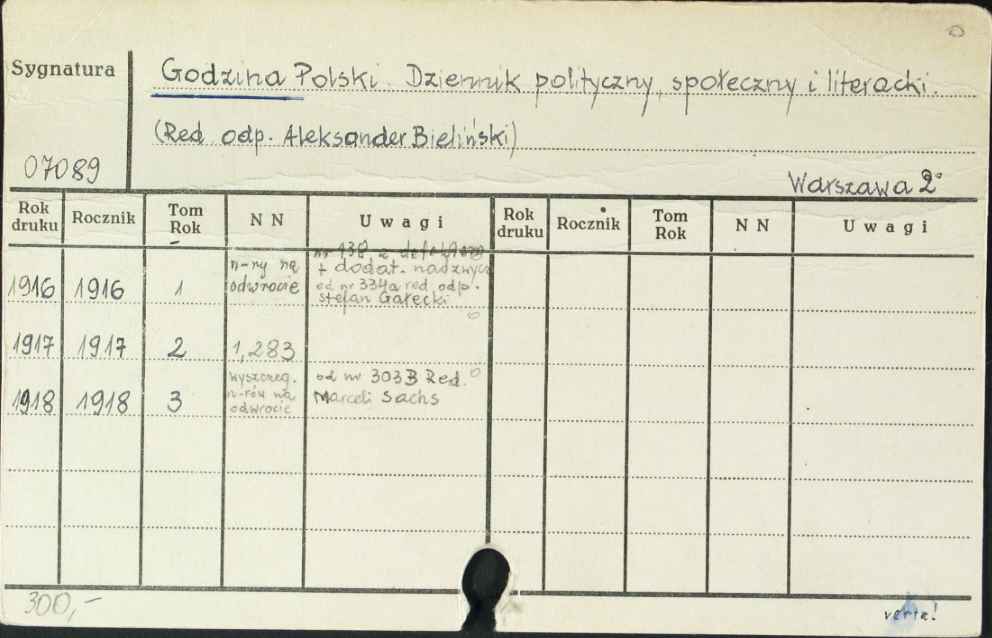 Sygnatura
Godzina Polski. Dziennik polityczny, społeczny i literacki.
(Red. odp. Aleksander Bieliński)
07089
Warszawa 2°
Rok druku Rocznik Tom Rok N N Uwagi Rok druku Rocznik Tom Rok N N Uwagi
1916 1916 1 n-ry na odwrocie nr 138 z defektem + dodat. nadzwycz. od nr 334a red. odp. Stefan Gałecki
1917 1917 2 1,283
1918 1918 3 wyszczeg. n-rów na odwrocie od nr 303B Red. Marceli Sachs
300,-
verte!